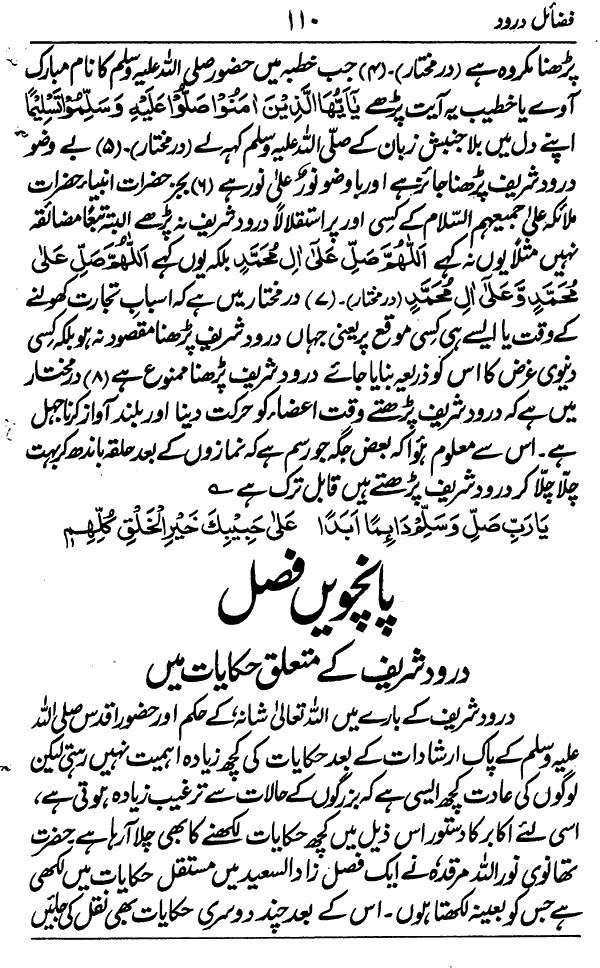 فضائل درود ۱۱۰
پڑھنا مکروہ ہے (درمختار)۔ (۴) جب خطبہ میں حضور صلی اللہ علیہ وسلم کا نام مبارک
آوے یا خطیب یہ آیت پڑھے يٰٓاَيُّهَا الَّذِيْنَ اٰمَنُوْا صَلُّوْا عَلَيْهِ وَسَلِّمُوْا تَسْلِيْمًا
اپنے دل میں بلا جنبش زبان کے صلی اللہ علیہ وسلم کہہ لے (درمختار)۔ (۵) بے وضو
درود شریف پڑھنا جائز ہے اور با وضو نورٌ علیٰ نور ہے (۶) بجز حضرات انبیاء، حضرات
ملائکہ علیٰ جمیعہم السلام کے کسی اور پر استقلالاً درود شریف نہ پڑھے البتہ تبعًا مضائقہ
نہیں مثلًا یوں نہ کہے اَللّٰهُمَّ صَلِّ عَلٰٓى اٰلِ مُحَمَّدٍ بلکہ یوں کہے اَللّٰهُمَّ صَلِّ عَلٰى
مُحَمَّدٍ وَّعَلٰٓى اٰلِ مُحَمَّدٍ (درمختار)۔ (۷) درمختار میں ہے کہ اسباب تجارت کھولنے
کے وقت یا ایسے ہی کسی موقع پر یعنی جہاں درود شریف پڑھنا مقصود نہ ہو بلکہ کسی
دنیوی غرض کا اس کو ذریعہ بنایا جائے درود شریف پڑھنا ممنوع ہے (۸) درمختار
میں ہے کہ درود شریف پڑھتے وقت اعضاء کو حرکت دینا اور بلند آواز کرنا جہل
ہے۔ اس سے معلوم ہؤا کہ بعض جگہ جو رسم ہے کہ نمازوں کے بعد حلقہ باندھ کر بہت
چلّا چلّا کر درود شریف پڑھتے ہیں قابل ترک ہے ؎
يَارَبِّ صَلِّ وَسَلِّمْ دَآئِمًا اَبَدًا عَلٰى حَبِيْبِكَ خَيْرِ الْخَلْقِ كُلِّهِمٖ
پانچویں فصل
درود شریف کے متعلق حکایات میں
درود شریف کے بارے میں اللہ تعالیٰ شانہٗ کے حکم اور حضور اقدس صلی اللہ
علیہ وسلم کے پاک ارشادات کے بعد حکایات کی کچھ زیادہ اہمیت نہیں رہتی لیکن
لوگوں کی عادت کچھ ایسی ہے کہ بزرگوں کے حالات سے ترغیب زیادہ ہوتی ہے،
اسی لئے اکابر کا دستور اس ذیل میں کچھ حکایات لکھنے کا بھی چلا آرہا ہے حضرت
تھانوی نور اللہ مرقدہٗ نے ایک فصل زاد السعید میں مستقل حکایات میں لکھی
ہے جس کو بعینہ لکھتا ہوں۔ اس کے بعد چند دوسری حکایات بھی نقل کی جائیں